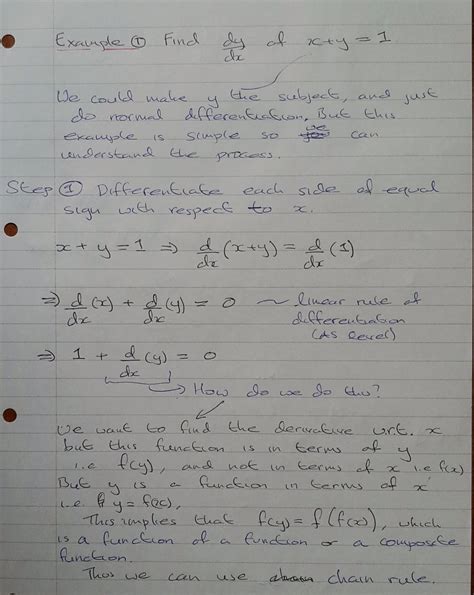 Example ① Find dy/dx of x+y=1
We could make y the subject, and just
do normal differentiation. But this
example is simple so we can
understand the process.
Step ① Differentiate each side of equal
sign with respect to x.
x + y = 1 ⇒ d/dx (x+y) = d/dx (1)
⇒ d/dx (x) + d/dx (y) = 0 ~ linear rule of
differentiation
(AS level)
⇒ 1 + d/dx (y) = 0
How do we do this?
We want to find the derivative wrt. x
but this function is in terms of y
i.e f(y), and not in terms of x i.e f(x)
But y is a function in terms of x
i.e. y = f(x),
This implies that f(y) = f(f(x)), which
is a function of a function or a composite
function.
Thus we can use chain rule.